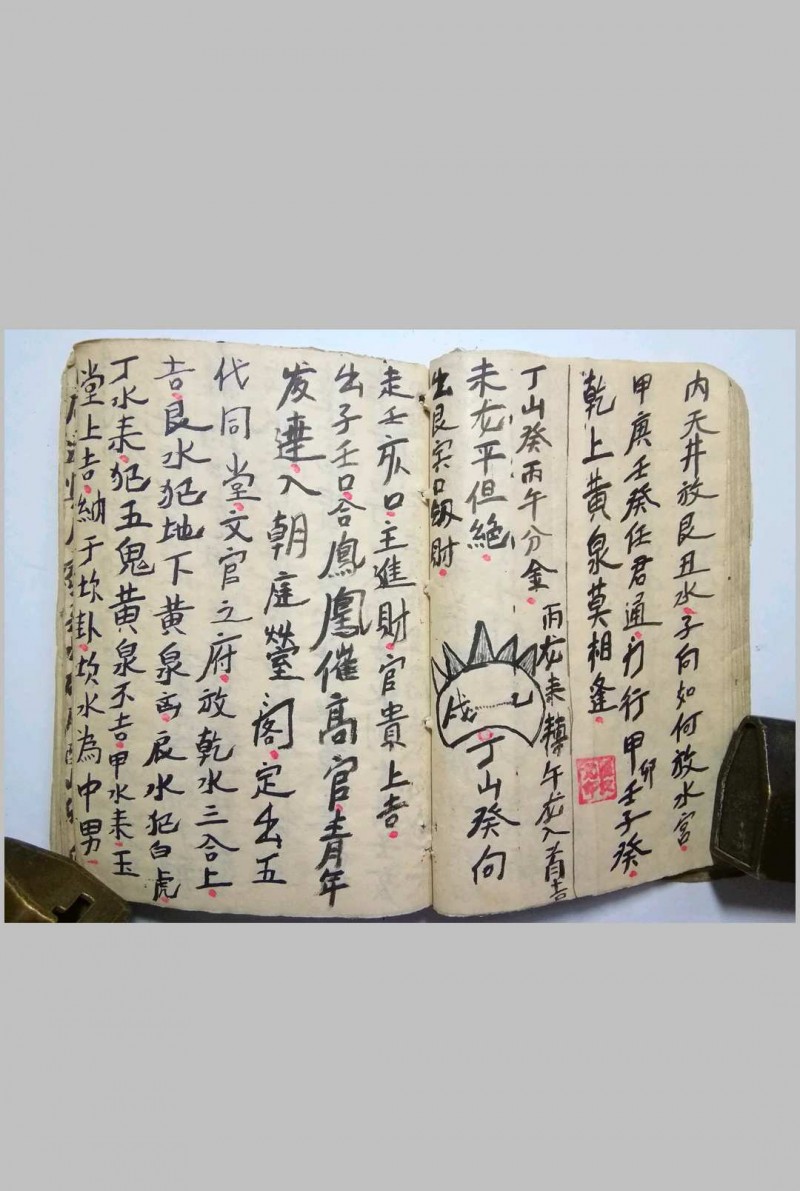 内天井放艮丑水子向如何放水宮
甲庚壬癸任君通行甲卯壬子癸
乾上黄泉莫相逢
丁山癸丙午分金丙龙来轉午龙入首吉
丁山癸向
未龙平但絶
出艮寅口敗財
走壬亥口主進財官貴上吉
出子壬口合鳳凰催高官青年
发達入朝庭營閣定出五
代同堂文官之府放乾水三合上
吉艮水犯地下黄泉凶辰水犯白虎
丁水来犯五鬼黄泉不吉甲水来玉
堂上吉納于坎卦坎水為中男